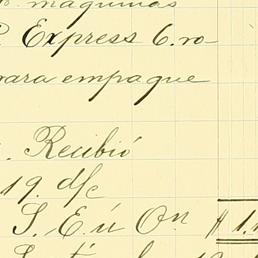 maquinas
Express 6. ro-
para empaque
Recibió
19. d/c
S. E. ú On. $ 1.